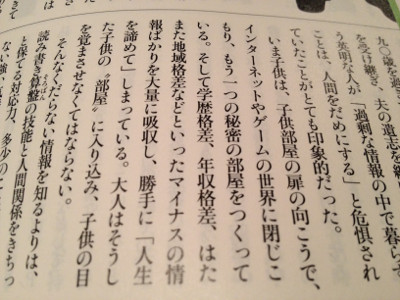 九〇歳を過ぎ
を受け継ぎ、夫の遺志を継
英明な人が「過剰な情報の中で暮らす
ことは、人間をだめにする」と危惧され
ていたことがとても印象的だった。
いま子供は、子供部屋の扉の向こうで、
インターネットやゲームの世界に閉じこ
もり、もう一つの秘密の部屋をつくって
いる。そして学歴格差、年収格差、はた
また地域格差などといったマイナスの情
報ばかりを大量に吸収し、勝手に「人生
を諦めて」しまっている。大人はそうし
た子供の〝部屋〟に入り込み、子供の目
を覚まさせなくてはならない。
そんなくだらない情報を知るよりは、
読み書き算盤の技能と人間関係をきちっ
と保てる対応力、多少の
ない強い